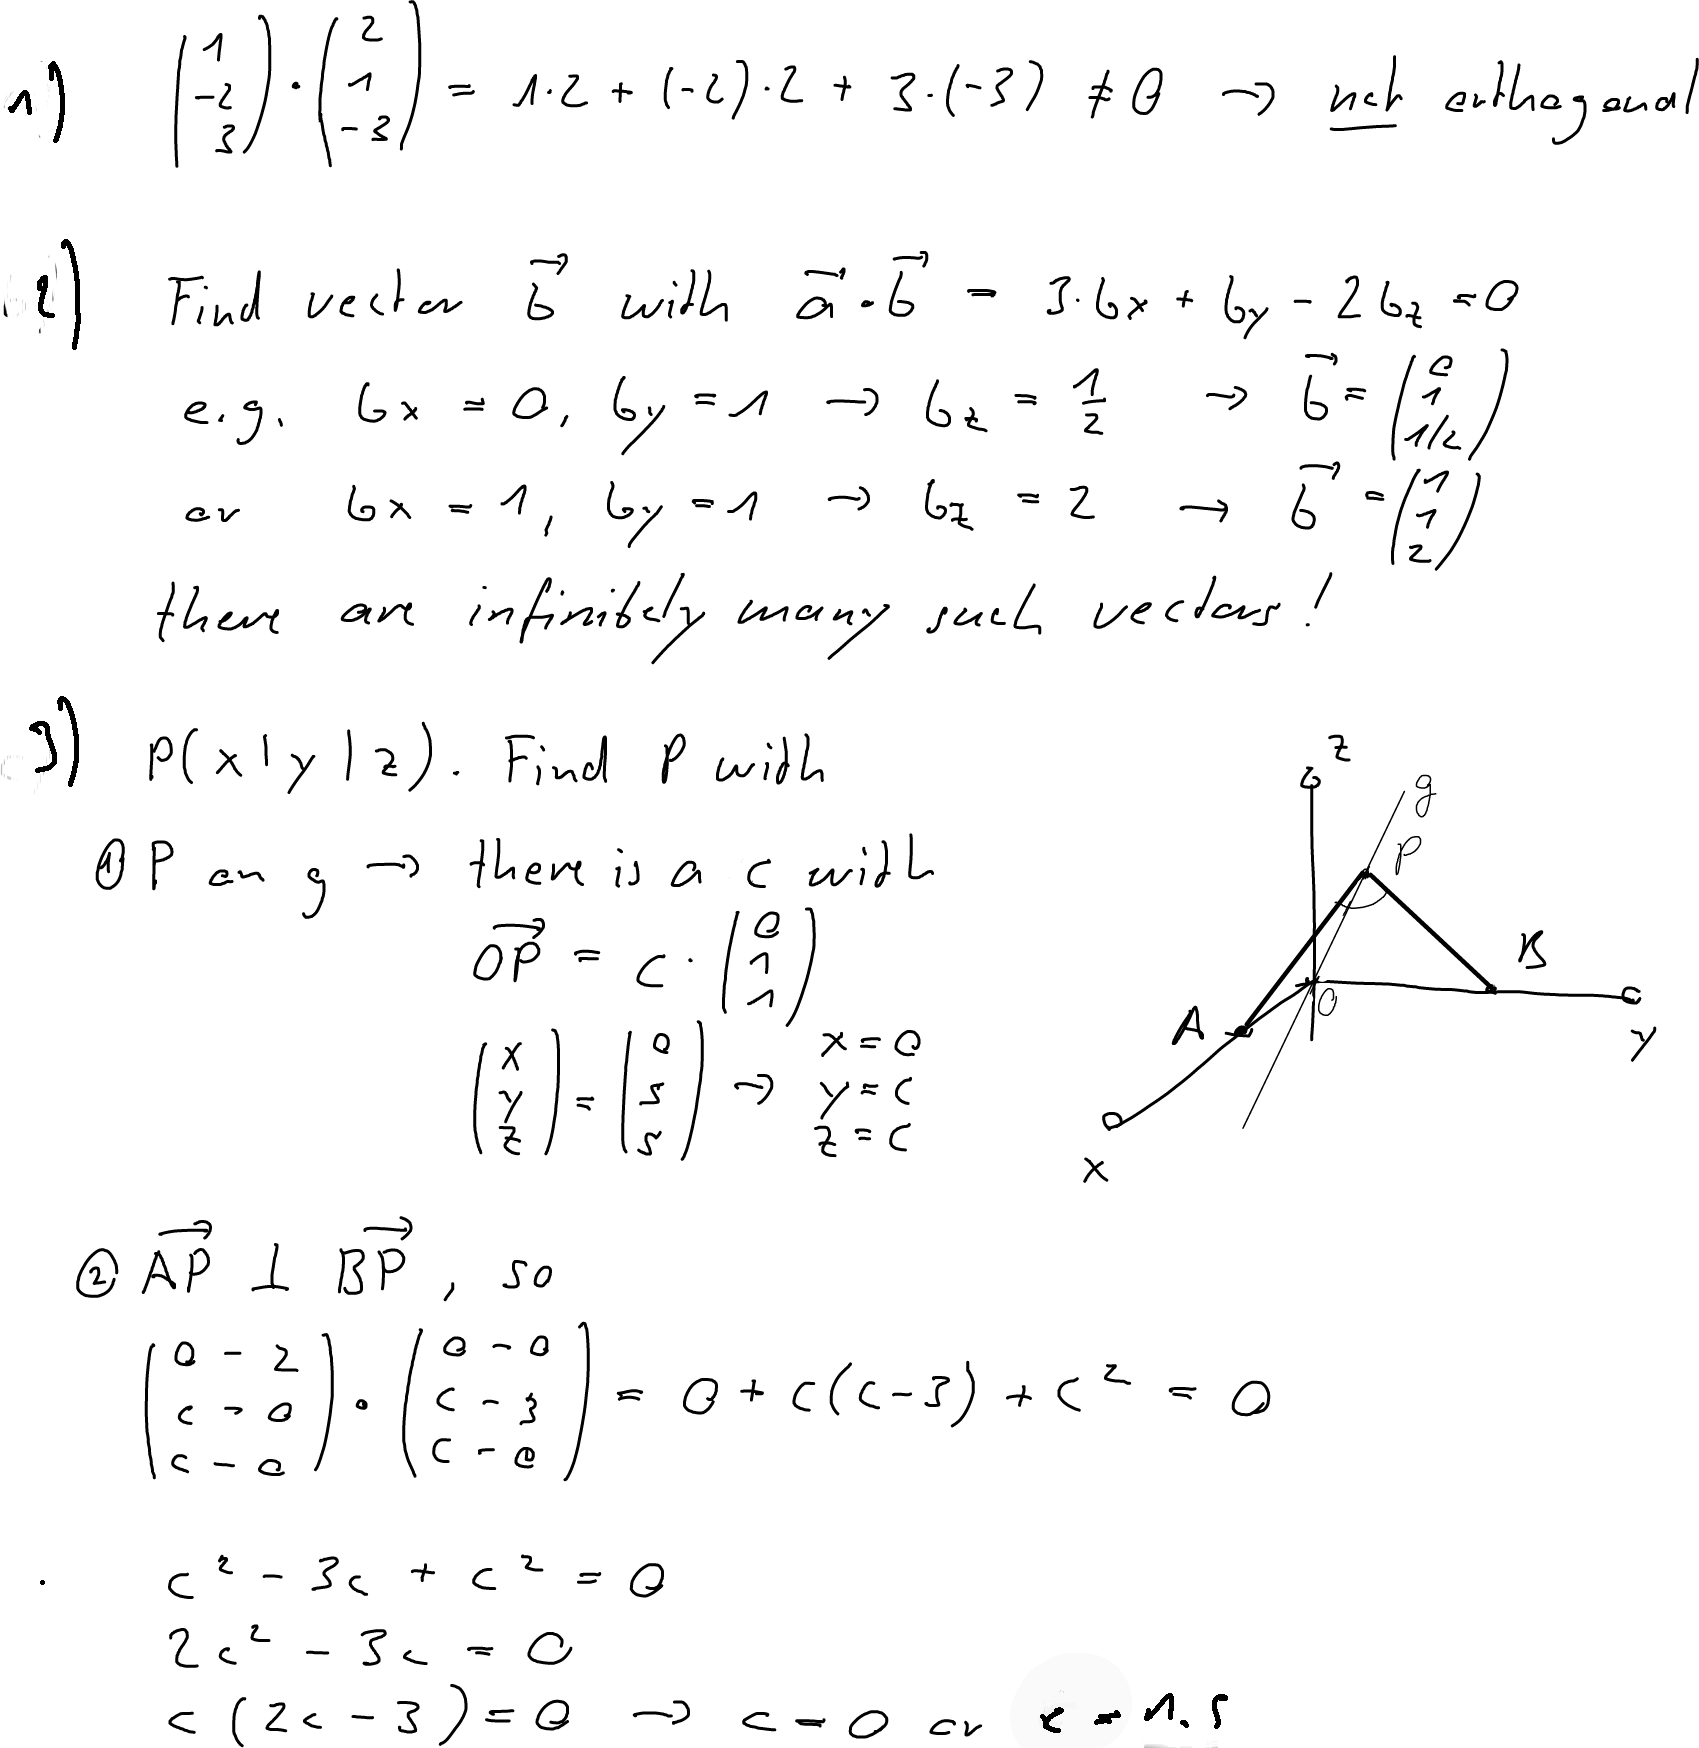 1) (1 -2 3) · (2 1 -3) = 1·2 + (-2)·2 + 3·(-3) ≠ 0 → not orthogonal
2) Find vector b⃗ with a⃗·b⃗ = 3·bx + by - 2bz = 0
e.g. bx = 0, by = 1 → bz = 1/2 → b⃗ = (0 1 1/2)
or bx = 1, by = 1 → bz = 2 → b⃗ = (1 1 2)
there are infinitely many such vectors!
3) P(x|y|z). Find P with
① P on g → there is a c with
OP⃗ = c · (0 1 1)
(x y z) = (0 s s) → x = 0 y = c z = c
z
g
P
B
A
O
y
x
② AP⃗ ⊥ BP⃗, so
(0-2 c-0 c-0) · (0-0 c-3 c-0) = 0 + c(c-3) + c² = 0
c² - 3c + c² = 0
2c² - 3c = 0
c(2c-3) = 0 → c = 0 or c = 1.5